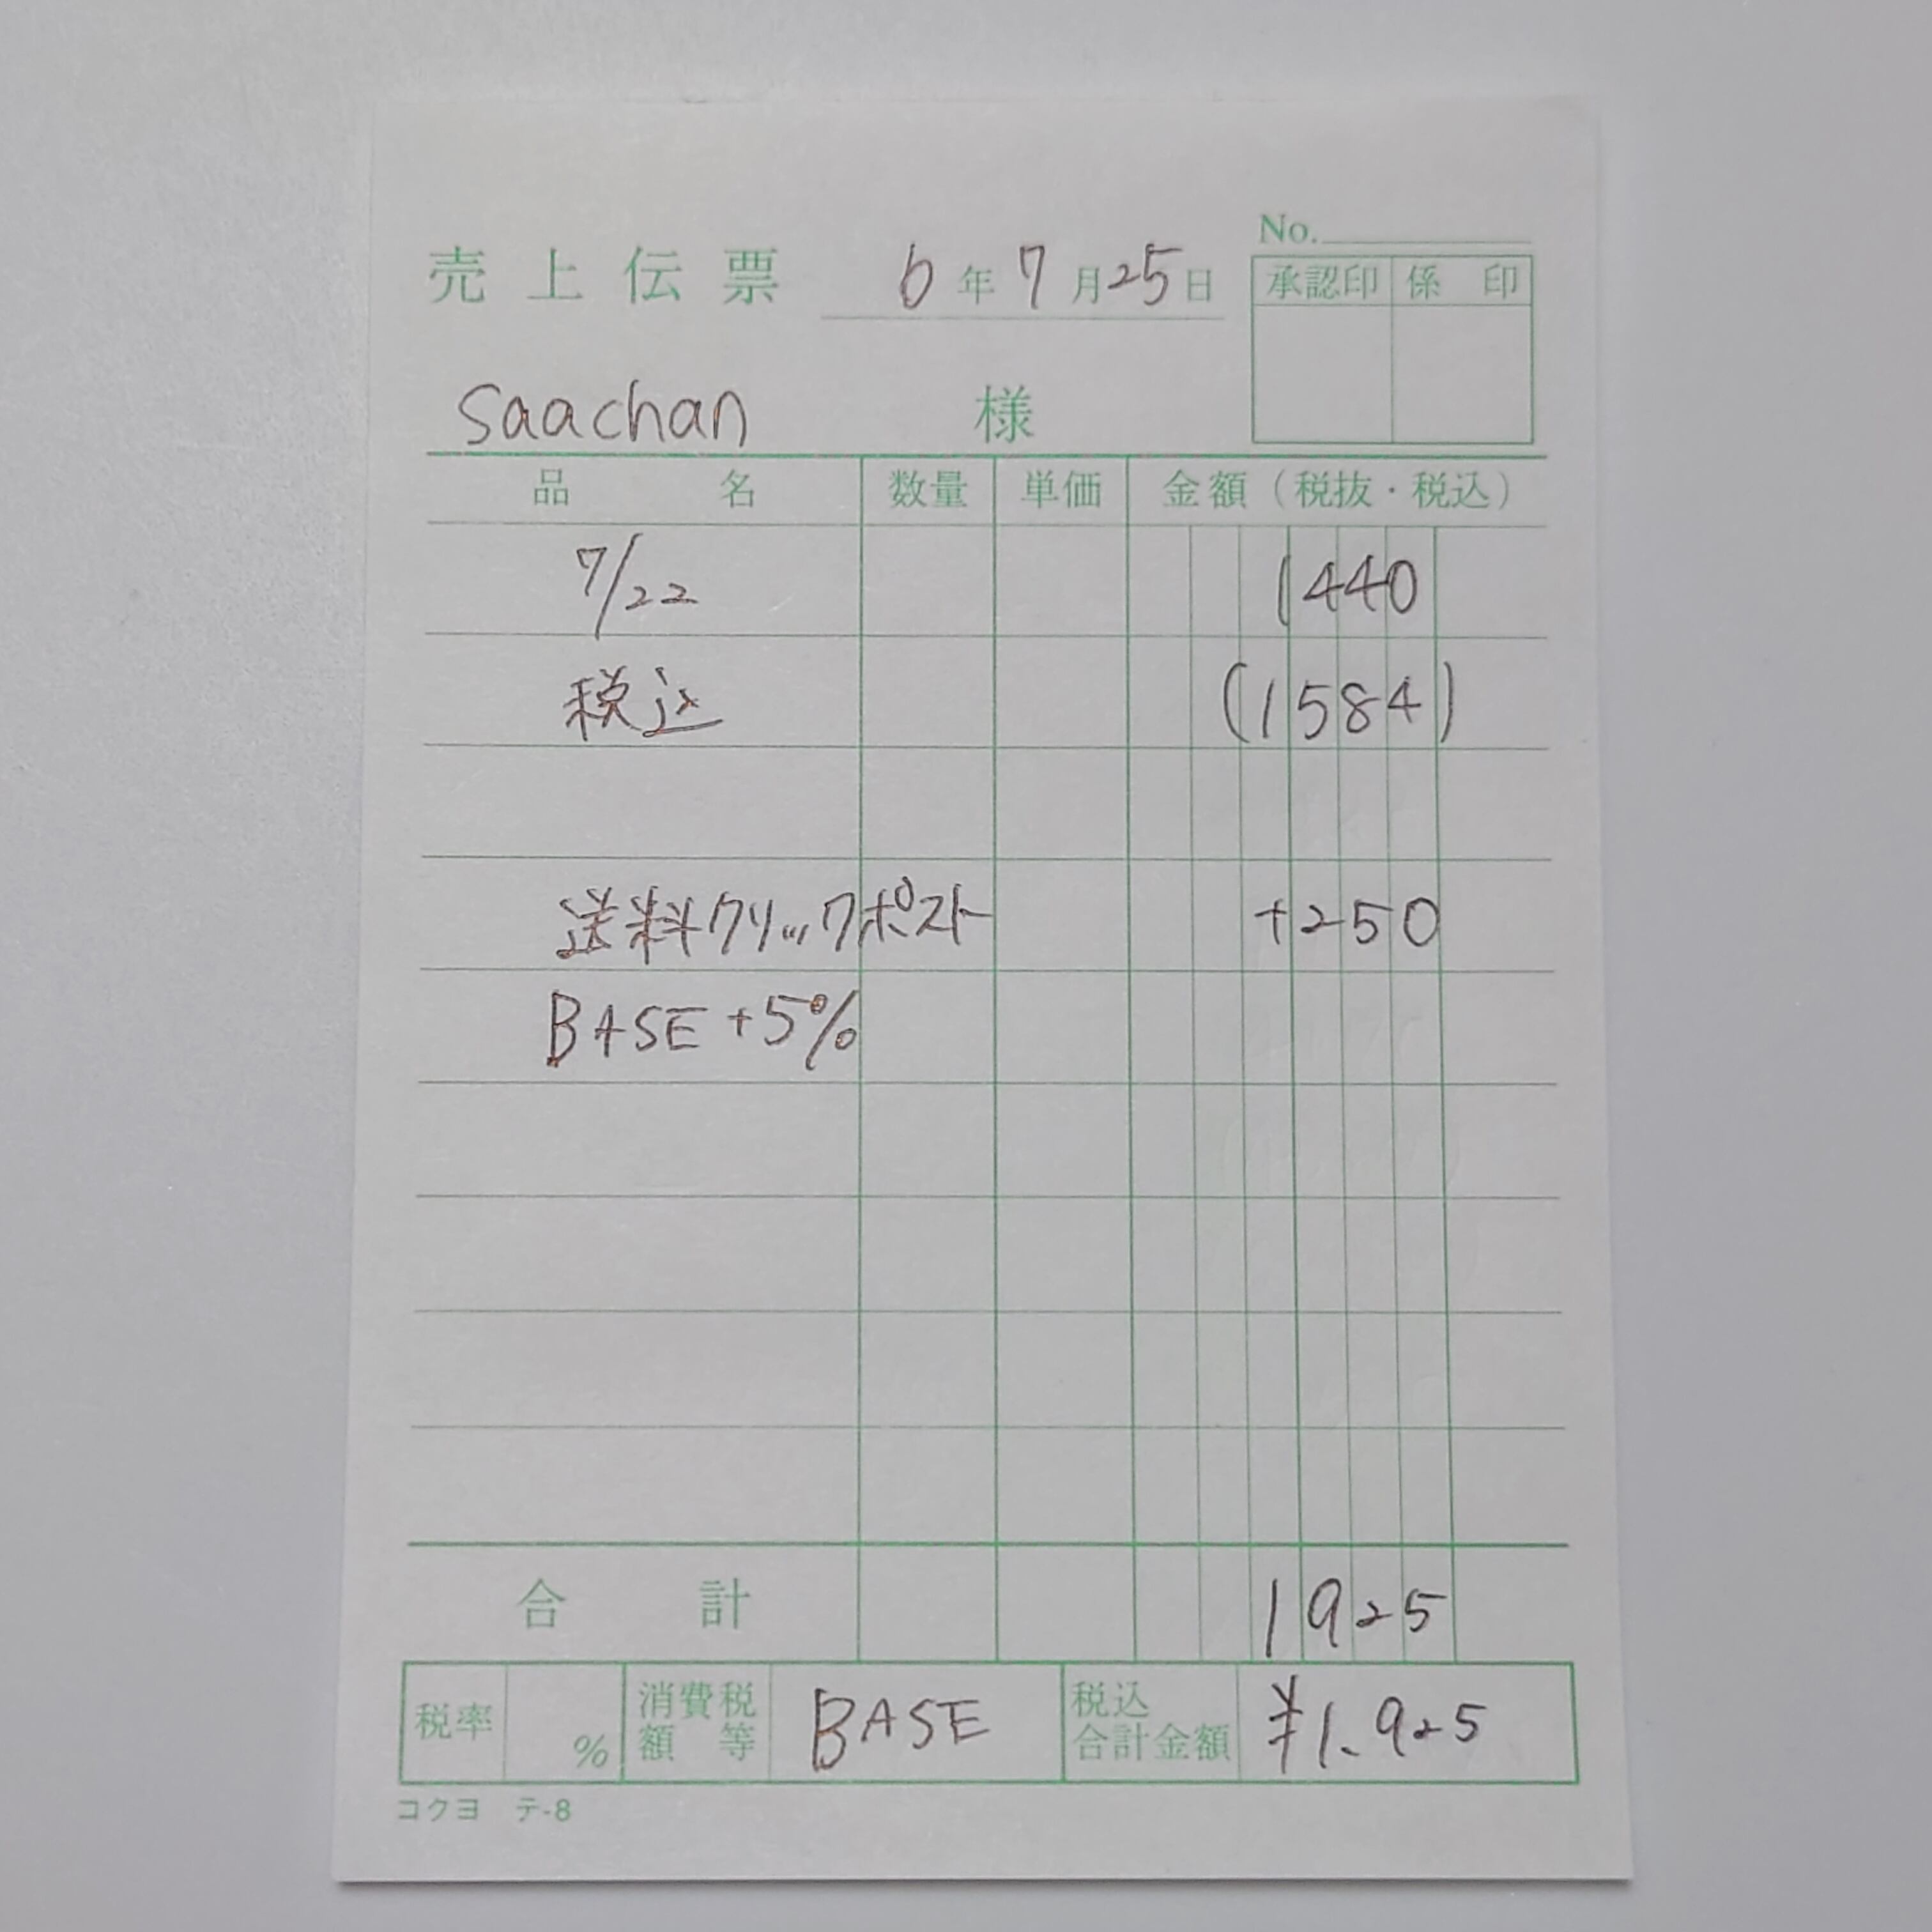 No.
売上伝票 6年7月25日
承認印 係印
saachan 様
品名 数量 単価 金額（税抜・税込）
7/22 1440
税込 (1584)
送料クリックポスト +250
BASE +5%
合計 1925
税率 % 消費税額等 BASE 税込合計金額 ¥1.925
コクヨ テ-8